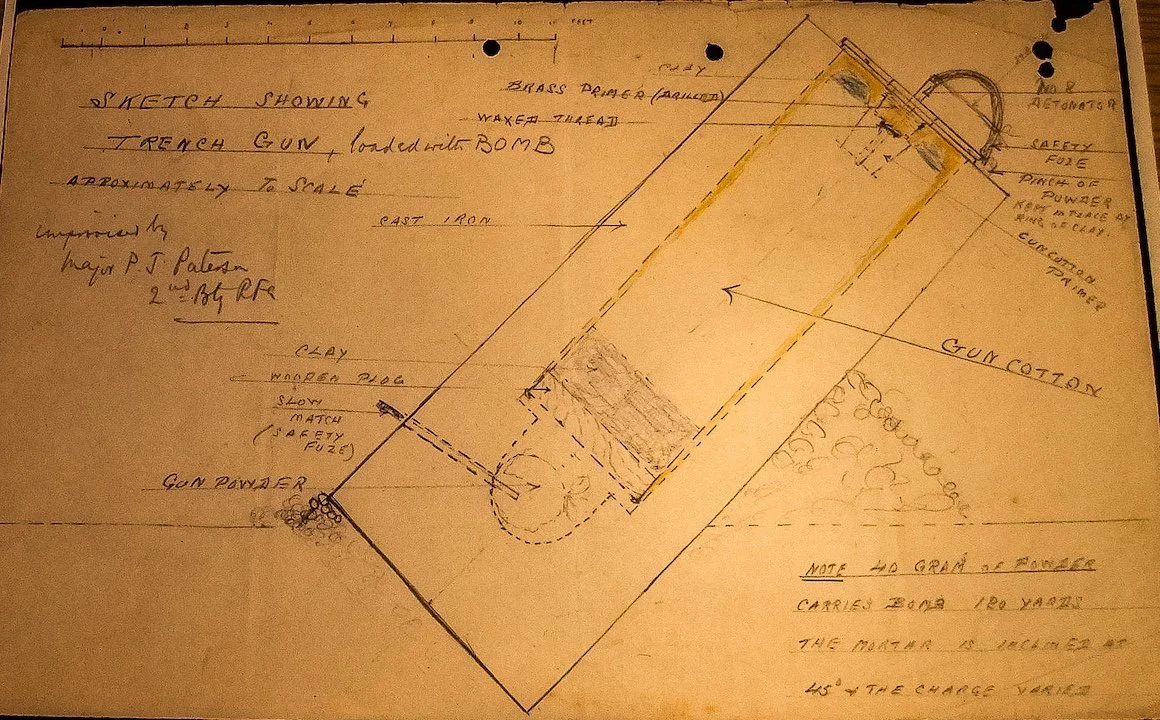 FEET
SKETCH SHOWING
TRENCH GUN, loaded with BOMB
APPROXIMATELY TO SCALE
improvised by
Major P. J. Paterson
2nd Bty RFA
CLAY
BRASS PRIMER (DRILLED)
WAXED THREAD
CAST IRON
No 8
DETONATOR
SAFETY
FUZE
PINCH OF
POWDER
KEPT IN PLACE BY
RING OF CLAY.
GUNCOTTON
PRIMER
GUN COTTON
CLAY
WOODEN PLUG
SLOW
MATCH
(SAFETY
FUZE)
GUN POWDER
NOTE 40 GRAM OF POWDER
CARRIES BOMB 120 YARDS
THE MORTAR IS INCLINED AT
45° & THE CHARGE VARIED